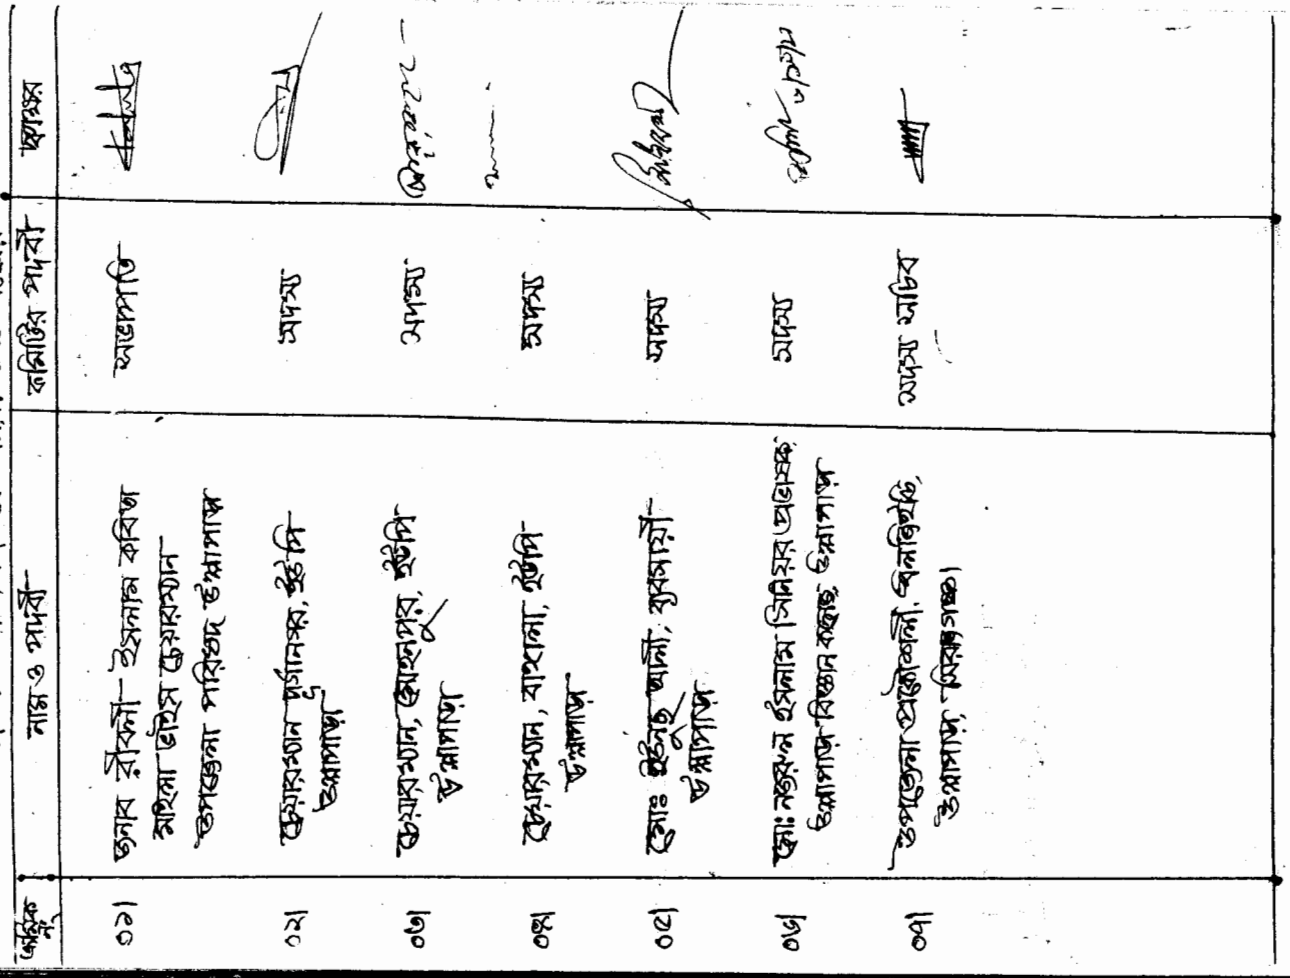 ক্রমিক নং
নাম ও পদবী
কমিটির পদবী
স্বাক্ষর
০১।
জনাব রীবলী ইসলাম কবিতা
মহিলা ভাইস চেয়ারম্যান
উপজেলা পরিষদ উল্লাপাড়া
সভাপতি
০২।
চেয়ারম্যান দুর্গানগর, ইউপি
উল্লাপাড়া
সদস্য
০৩।
চেয়ারম্যান, মোহনপুর, ইউপি
উল্লাপাড়া
সদস্য
০৪।
চেয়ারম্যান, বাঙ্গালা, ইউপি
উল্লাপাড়া
সদস্য
০৫।
মোঃ ইউনুছ আলী, ব্যবসায়ী
উল্লাপাড়া
সদস্য
০৬।
মোঃ নজরুল ইসলাম সিনিয়র প্রভাষক
উল্লাপাড়া বিজ্ঞান কলেজ, উল্লাপাড়া
সদস্য
০৭।
উপজেলা প্রকৌশলী, এলজিইডি,
উল্লাপাড়া, সিরাজগঞ্জ।
সদস্য সচিব